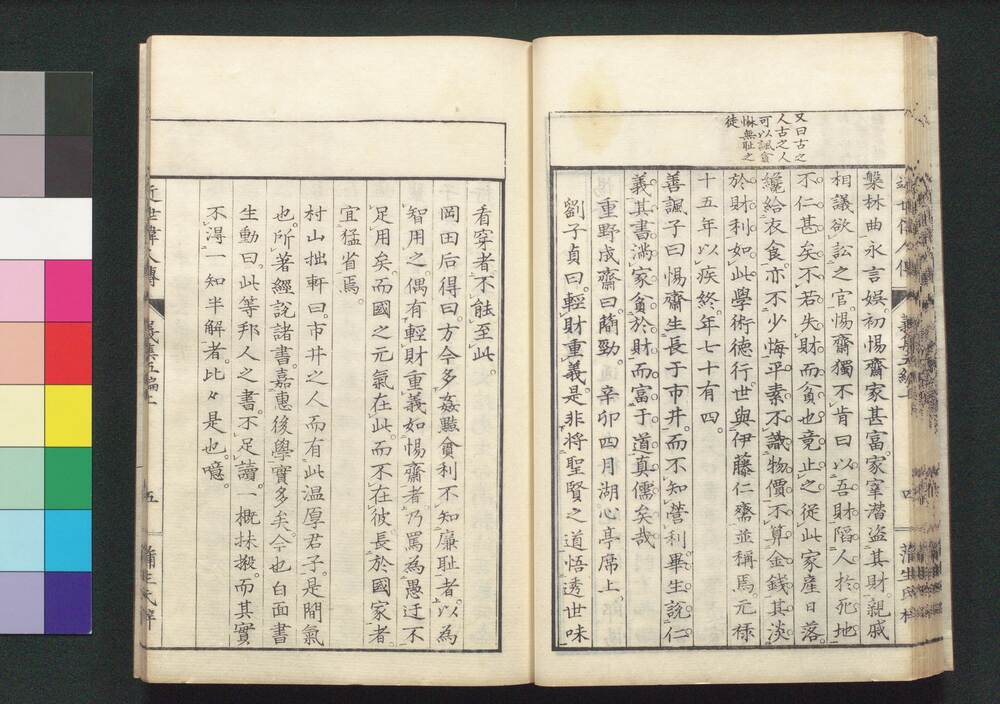 又曰古之
人古之人
可以諷貪
惏無耻之
徒
近世偉人傳
義集五編上
四
蒲生氏梓
槃林曲永言娯初惕齋家甚富家宰潜盗其財親戚
相議欲訟之官惕齋獨不肯曰以吾財陷人於死地
不仁甚矣不若失財而貪也竟止之從此家産日落
纔給衣食亦不少悔平素不識物價不算金錢其淡
於財利如此學術德行世與伊藤仁齋並稱焉元祿
十五年以疾終年七十有四
善諷子曰惕齋生長于市井而不知營利畢生說仁
義其書滿家貧於財而富于道真儒矣哉
重野成齋曰簡勁 辛卯四月湖心亭席上
劉子貞曰輕財重義是非將聖賢之道悟透世味
看穿者不能至此
岡田后得曰方今多姦黠貪利不知廉耻者以為
智用之偶有輕財重義如惕齋者乃罵為愚迂不
足用矣而國之元氣在此而不在彼長於國家者
宜猛省焉
村山拙軒曰市井之人而有此温厚君子是関氣
也所著經說諸書嘉惠後學實多矣今也白面書
生動曰此等邦人之書不足讀一概抹摋而其實
不得一知半解者比々是也噫
近世偉人傳
義集五編上
五
蒲生氏梓